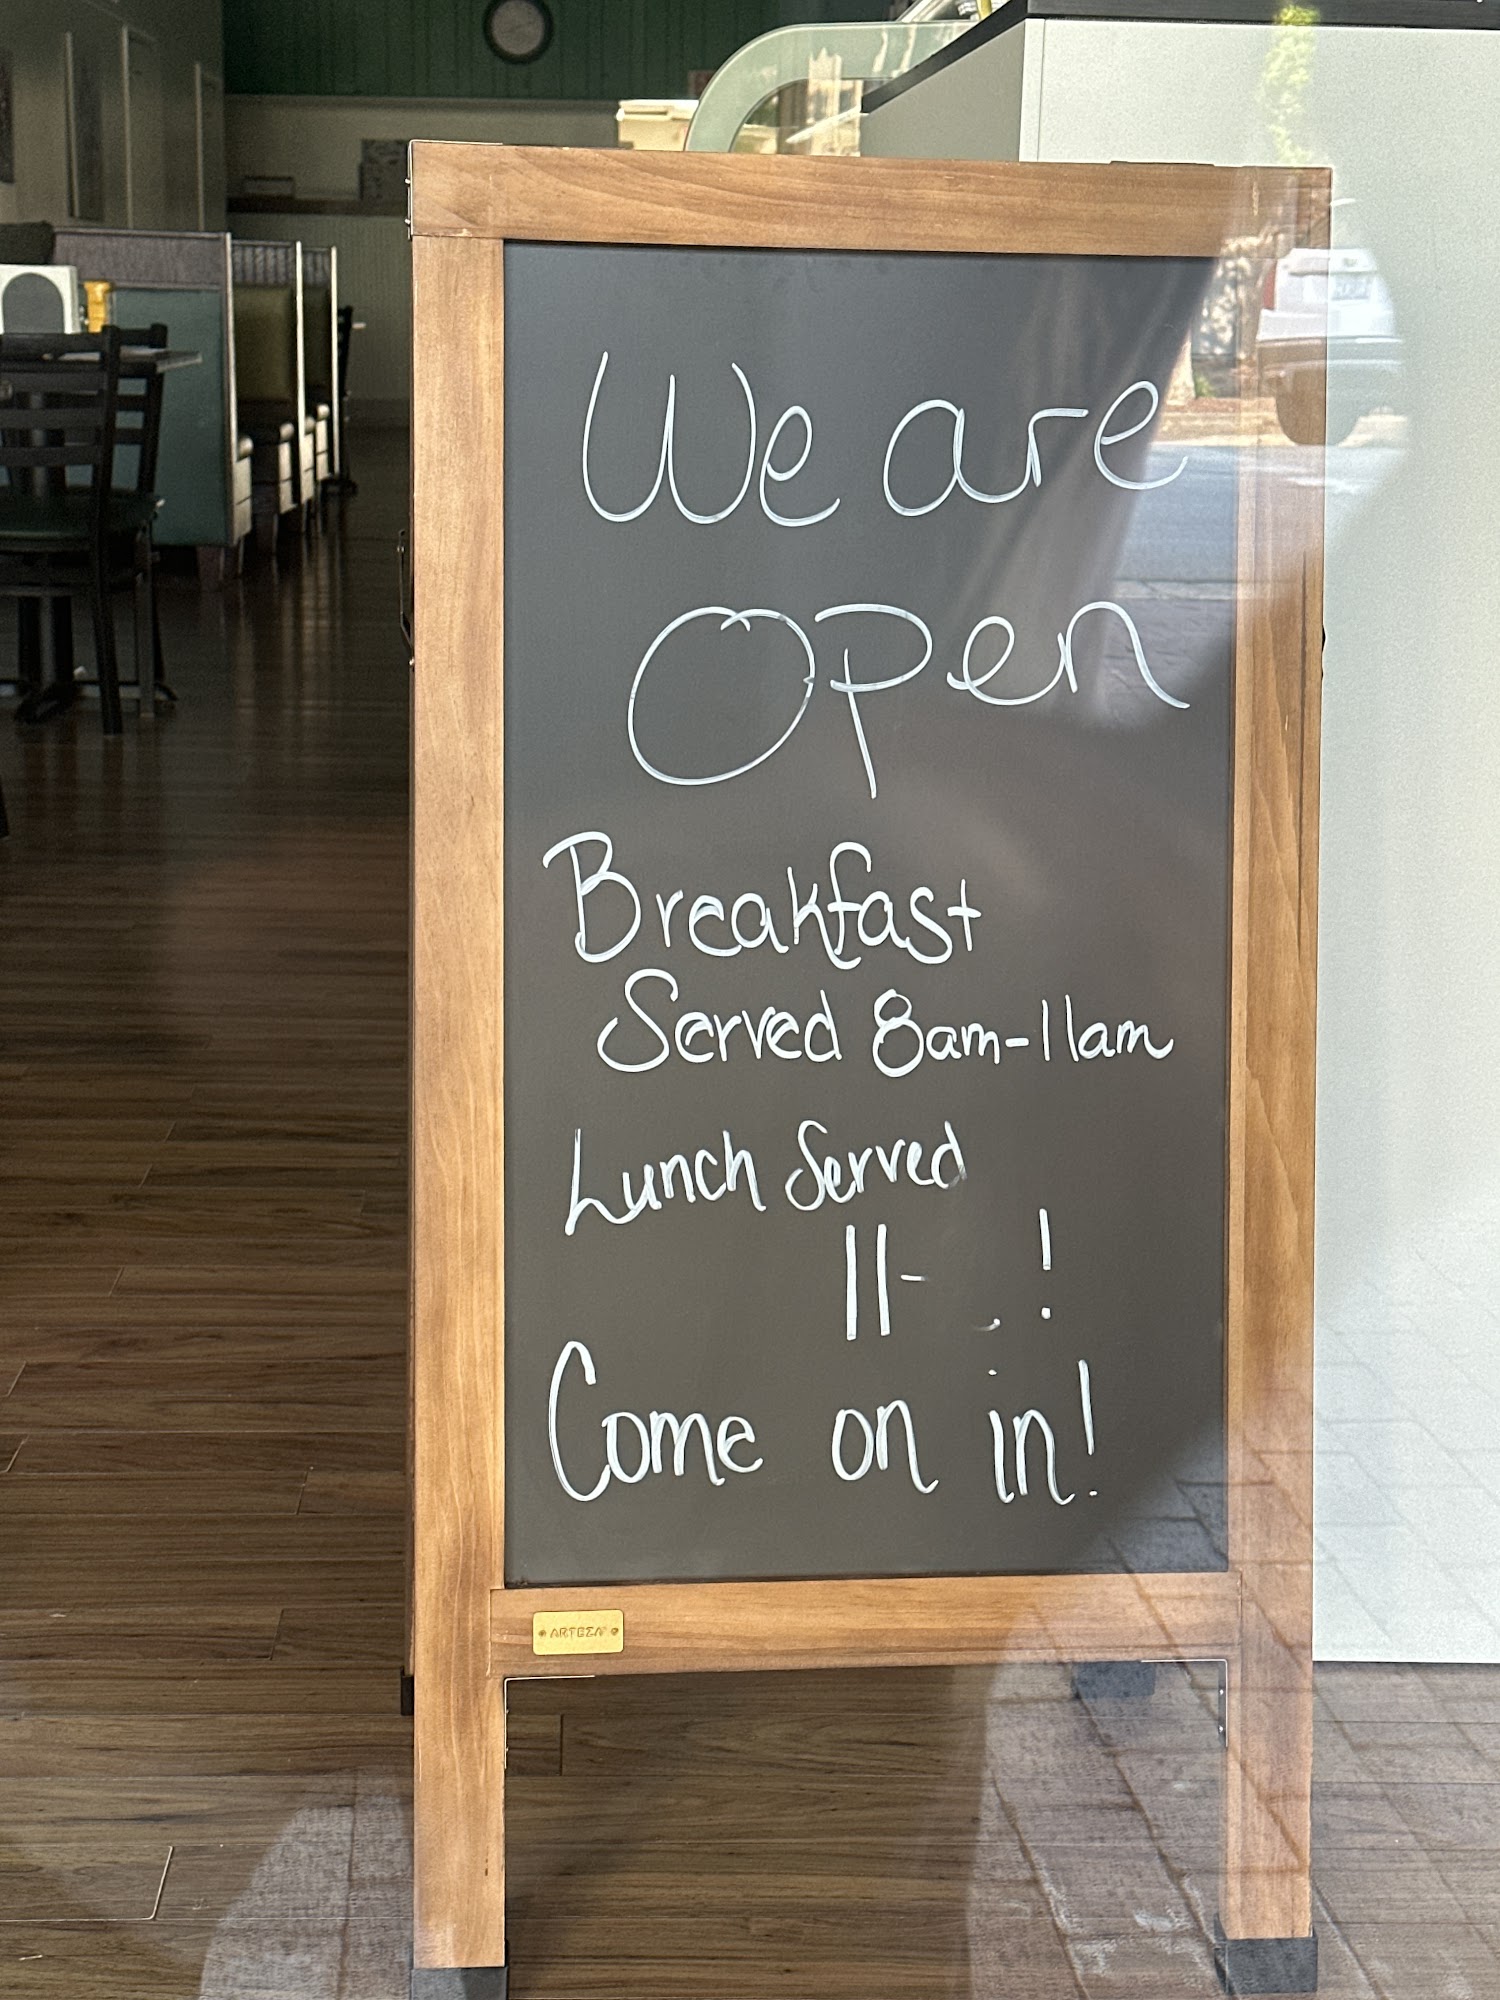 We are
open
Breakfast
Served 8am-11am
Lunch Served
11- !
Come on in!
ARTEZA